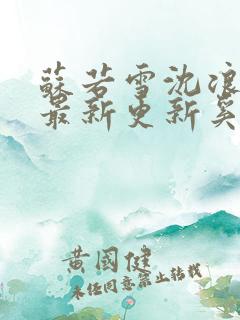 蘇若雪沈浪
最新更新奚
黃國健
未经同意禁止转载